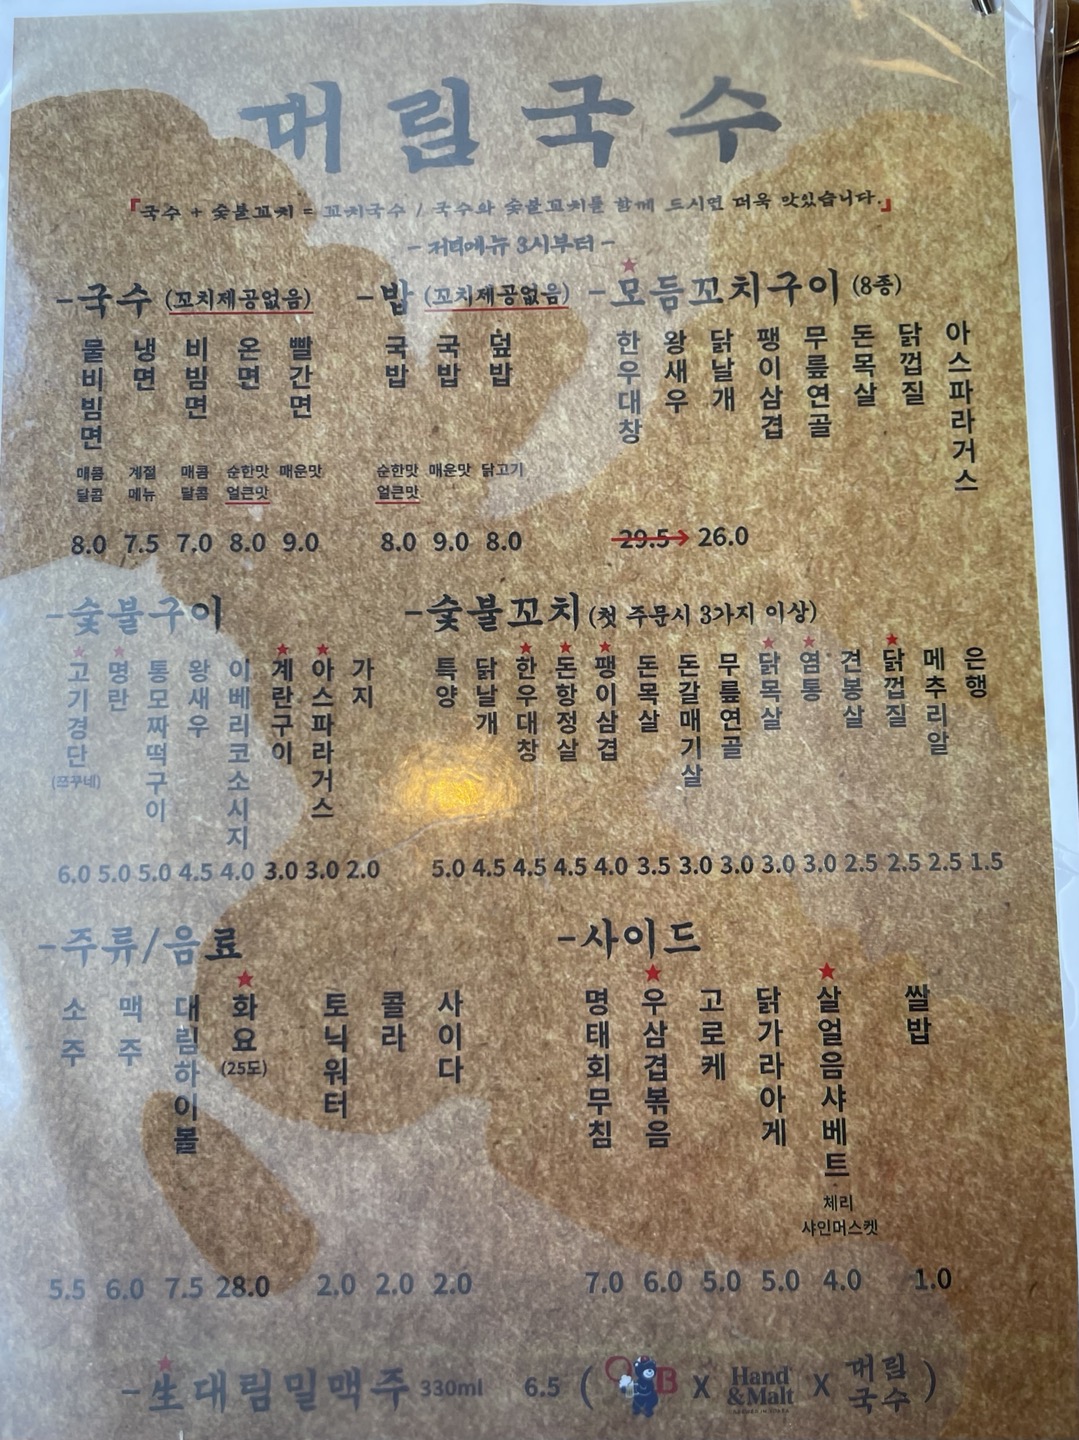 대림국수
「국수 + 숯불꼬치 = 꼬치국수 / 국수와 숯불꼬치를 함께 드시면 더욱 맛있습니다.」
- 저녁메뉴 3시부터 -
-국수 (꼬치제공없음)
물비빔면 냉면 비빔면 온면 빨간면
매콤달콤 계절메뉴 매콤달콤 순한맛얼큰맛 매운맛
8.0 7.5 7.0 8.0 9.0
-밥 (꼬치제공없음)
국밥 국밥 덮밥
순한맛얼큰맛 매운맛 닭고기
8.0 9.0 8.0
-모듬꼬치구이 (8종)
한우대창 왕새우 닭날개 팽이삼겹 무릎연골 돈목살 닭껍질 아스파라거스
29.5→ 26.0
-숯불구이
고기경단(쯔꾸네) 명란 통모짜떡구이 왕새우 이베리코소시지 계란구이 아스파라거스 가지
6.0 5.0 5.0 4.5 4.0 3.0 3.0 2.0
-숯불꼬치 (첫 주문시 3가지 이상)
특양 닭날개 한우대창 돈항정살 팽이삼겹 돈목살 돈갈매기살 무릎연골 닭목살 염통 견봉살 닭껍질 메추리알 은행
5.0 4.5 4.5 4.5 4.0 3.5 3.0 3.0 3.0 3.0 2.5 2.5 2.5 1.5
-주류/음료
소주 맥주 대림하이볼 화요(25도) 토닉워터 콜라 사이다
5.5 6.0 7.5 28.0 2.0 2.0 2.0
-사이드
명태회무침 우삼겹볶음 고로케 닭가라아게 살얼음샤베트 쌀밥
체리
샤인머스켓
7.0 6.0 5.0 5.0 4.0 1.0
-生대림밀맥주 330ml 6.5 (OB X Hand &Malt X 대림국수)